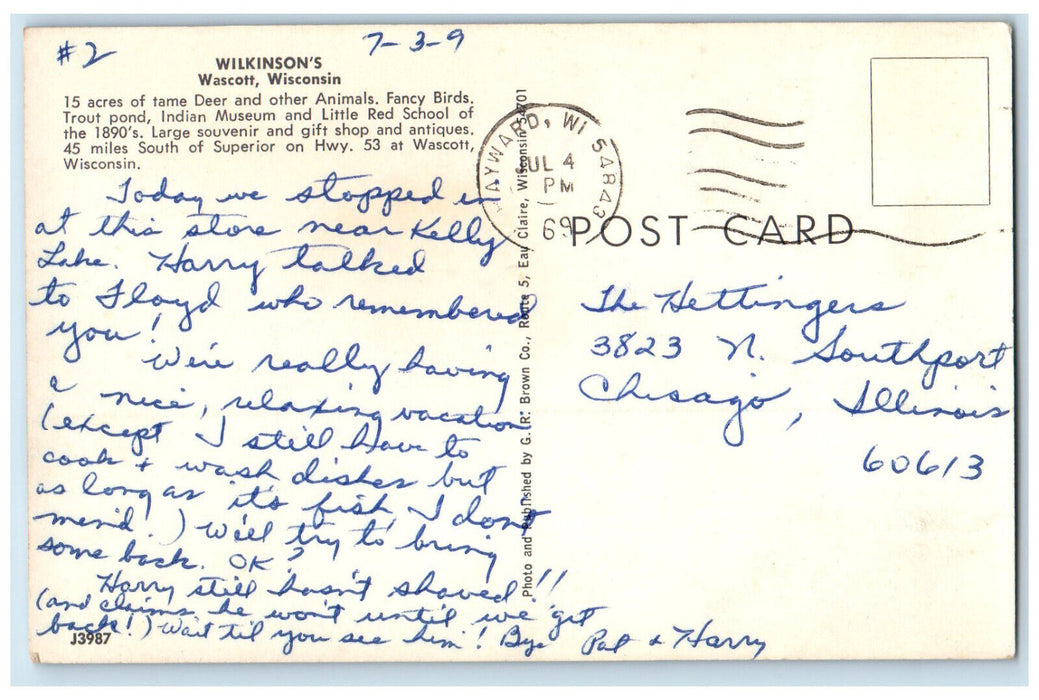 #2
7-3-9
WILKINSON'S
Wascott, Wisconsin
15 acres of tame Deer and other Animals. Fancy Birds.
Trout pond, Indian Museum and Little Red School of
the 1890's. Large souvenir and gift shop and antiques.
45 miles South of Superior on Hwy. 53 at Wascott,
Wisconsin.
Today we stopped in
at this store near Kelly
Lake. Harry talked
to Floyd who remembered
you!
We're really having
a nice, relaxing vacation
(except I still have to
cook + wash dishes but
as long as it's fish, I don't
mind!) We'll try to bring
some back. OK?
Harry still hasn't shaved!!
(and claims he won't until we get
back!) Wait til you see him! Bye
Pat & Harry
J3987
Photo and Published by G. R. Brown Co., Route 5, Eau Claire, Wisconsin 54701
HAYWARD, WI 54843
JUL 4
PM
69
POST CARD
The Hettingers
3823 N. Southport
Chicago, Illinois
60613